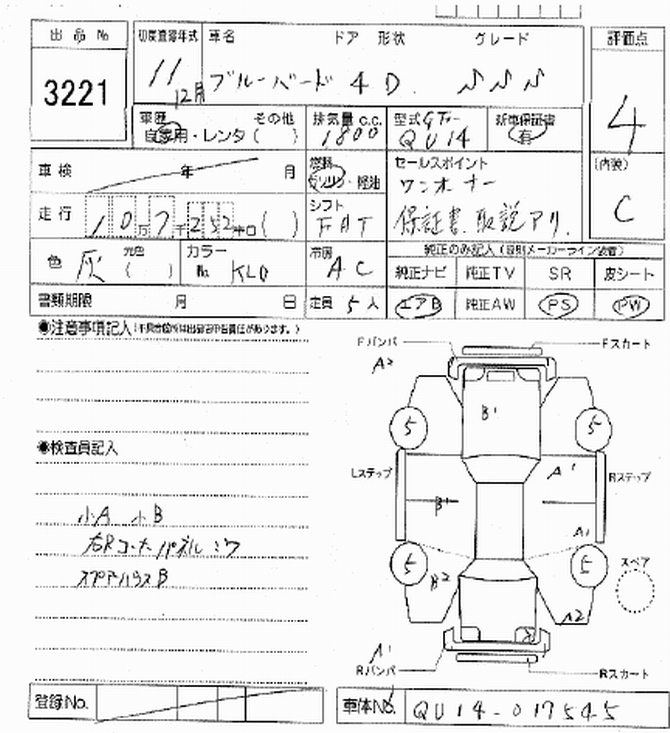 出品No
3221
初度登録年式
11 12月
車名 ドア 形状 グレード
ブルーバード 4 D. SSS
評価点
4
(内装)
C
車歴 その他
自家用・レンタ( )
排気量 c.c.
1800
型式
QU14
新車保証書
有
車検 年 月
燃料
ガソリン・軽油
セールスポイント
ワンオーナー
保証書.取説アリ.
走行 10万7千252キロ( )
シフト
FAT
色 灰 元色( )
カラーNo. KL0
冷房
AC
純正のみ記入(原則メーカーライン装着)
純正ナビ 純正TV SR 皮シート
書類期限 月 日
定員 5人
エアB 純正AW PS PW
◉注意事項記入(不具合箇所は出品店申告責任があります。)
◉検査員記入
小A 小B
右Rコーナーパネル ミワ
スペアハウスB
Fバンパ Fスカート
A2
B1
5 5
Lステップ Rステップ
A1
B1
A1
5 5
スペア
B2
A2
A1
Rバンパ Rスカート
登録No.
車体No. QU14-017545